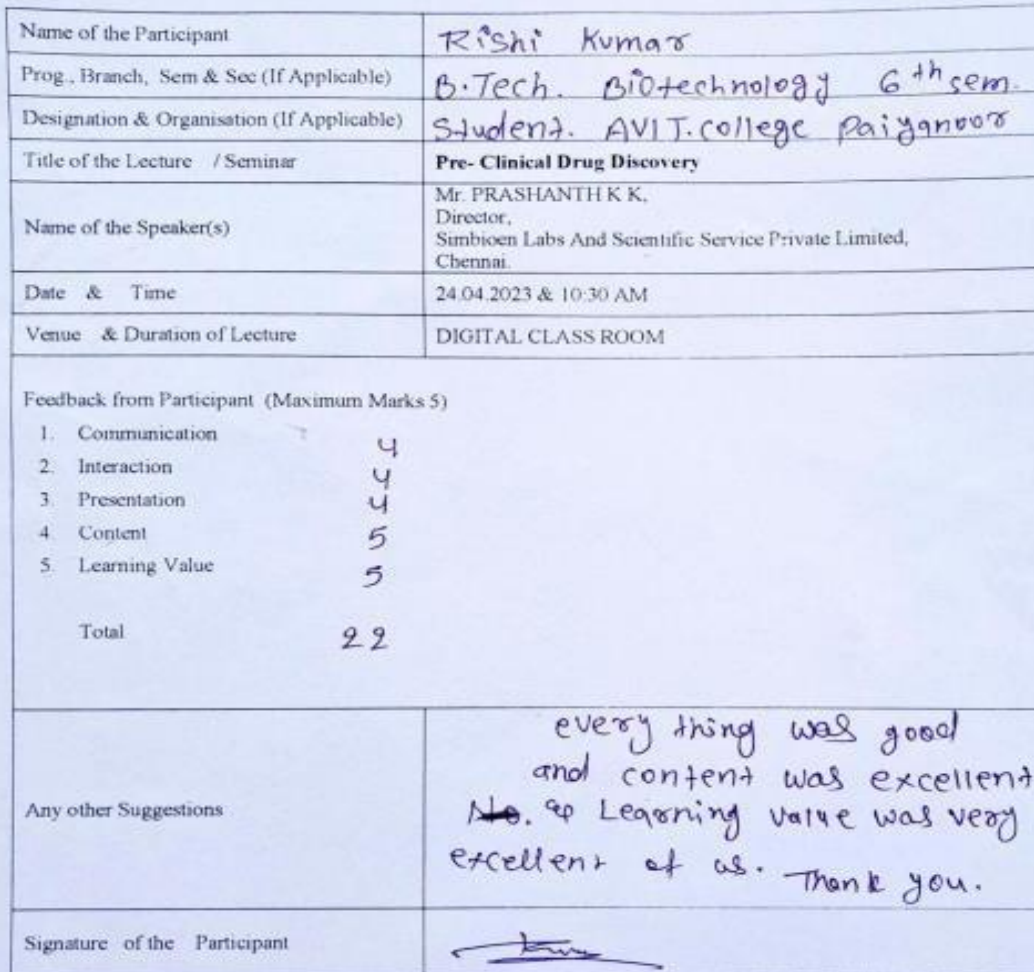 Name of the Participant Rishi Kumar
Prog., Branch, Sem & Sec (If Applicable) B.Tech. Biotechnology 6th sem.
Designation & Organisation (If Applicable) Student. AVIT. college Paiyanoor
Title of the Lecture / Seminar Pre- Clinical Drug Discovery
Name of the Speaker(s)
Mr. PRASHANTH K K,
Director,
Simbioen Labs And Scientific Service Private Limited,
Chennai.
Date & Time 24.04.2023 & 10:30 AM
Venue & Duration of Lecture DIGITAL CLASS ROOM
Feedback from Participant (Maximum Marks 5)
1. Communication 4
2. Interaction 4
3. Presentation 4
4. Content 5
5. Learning Value 5
Total 22
Any other Suggestions
every thing was good
and content was excellent
Learning value was very
excellent of us. Thank you.
Signature of the Participant